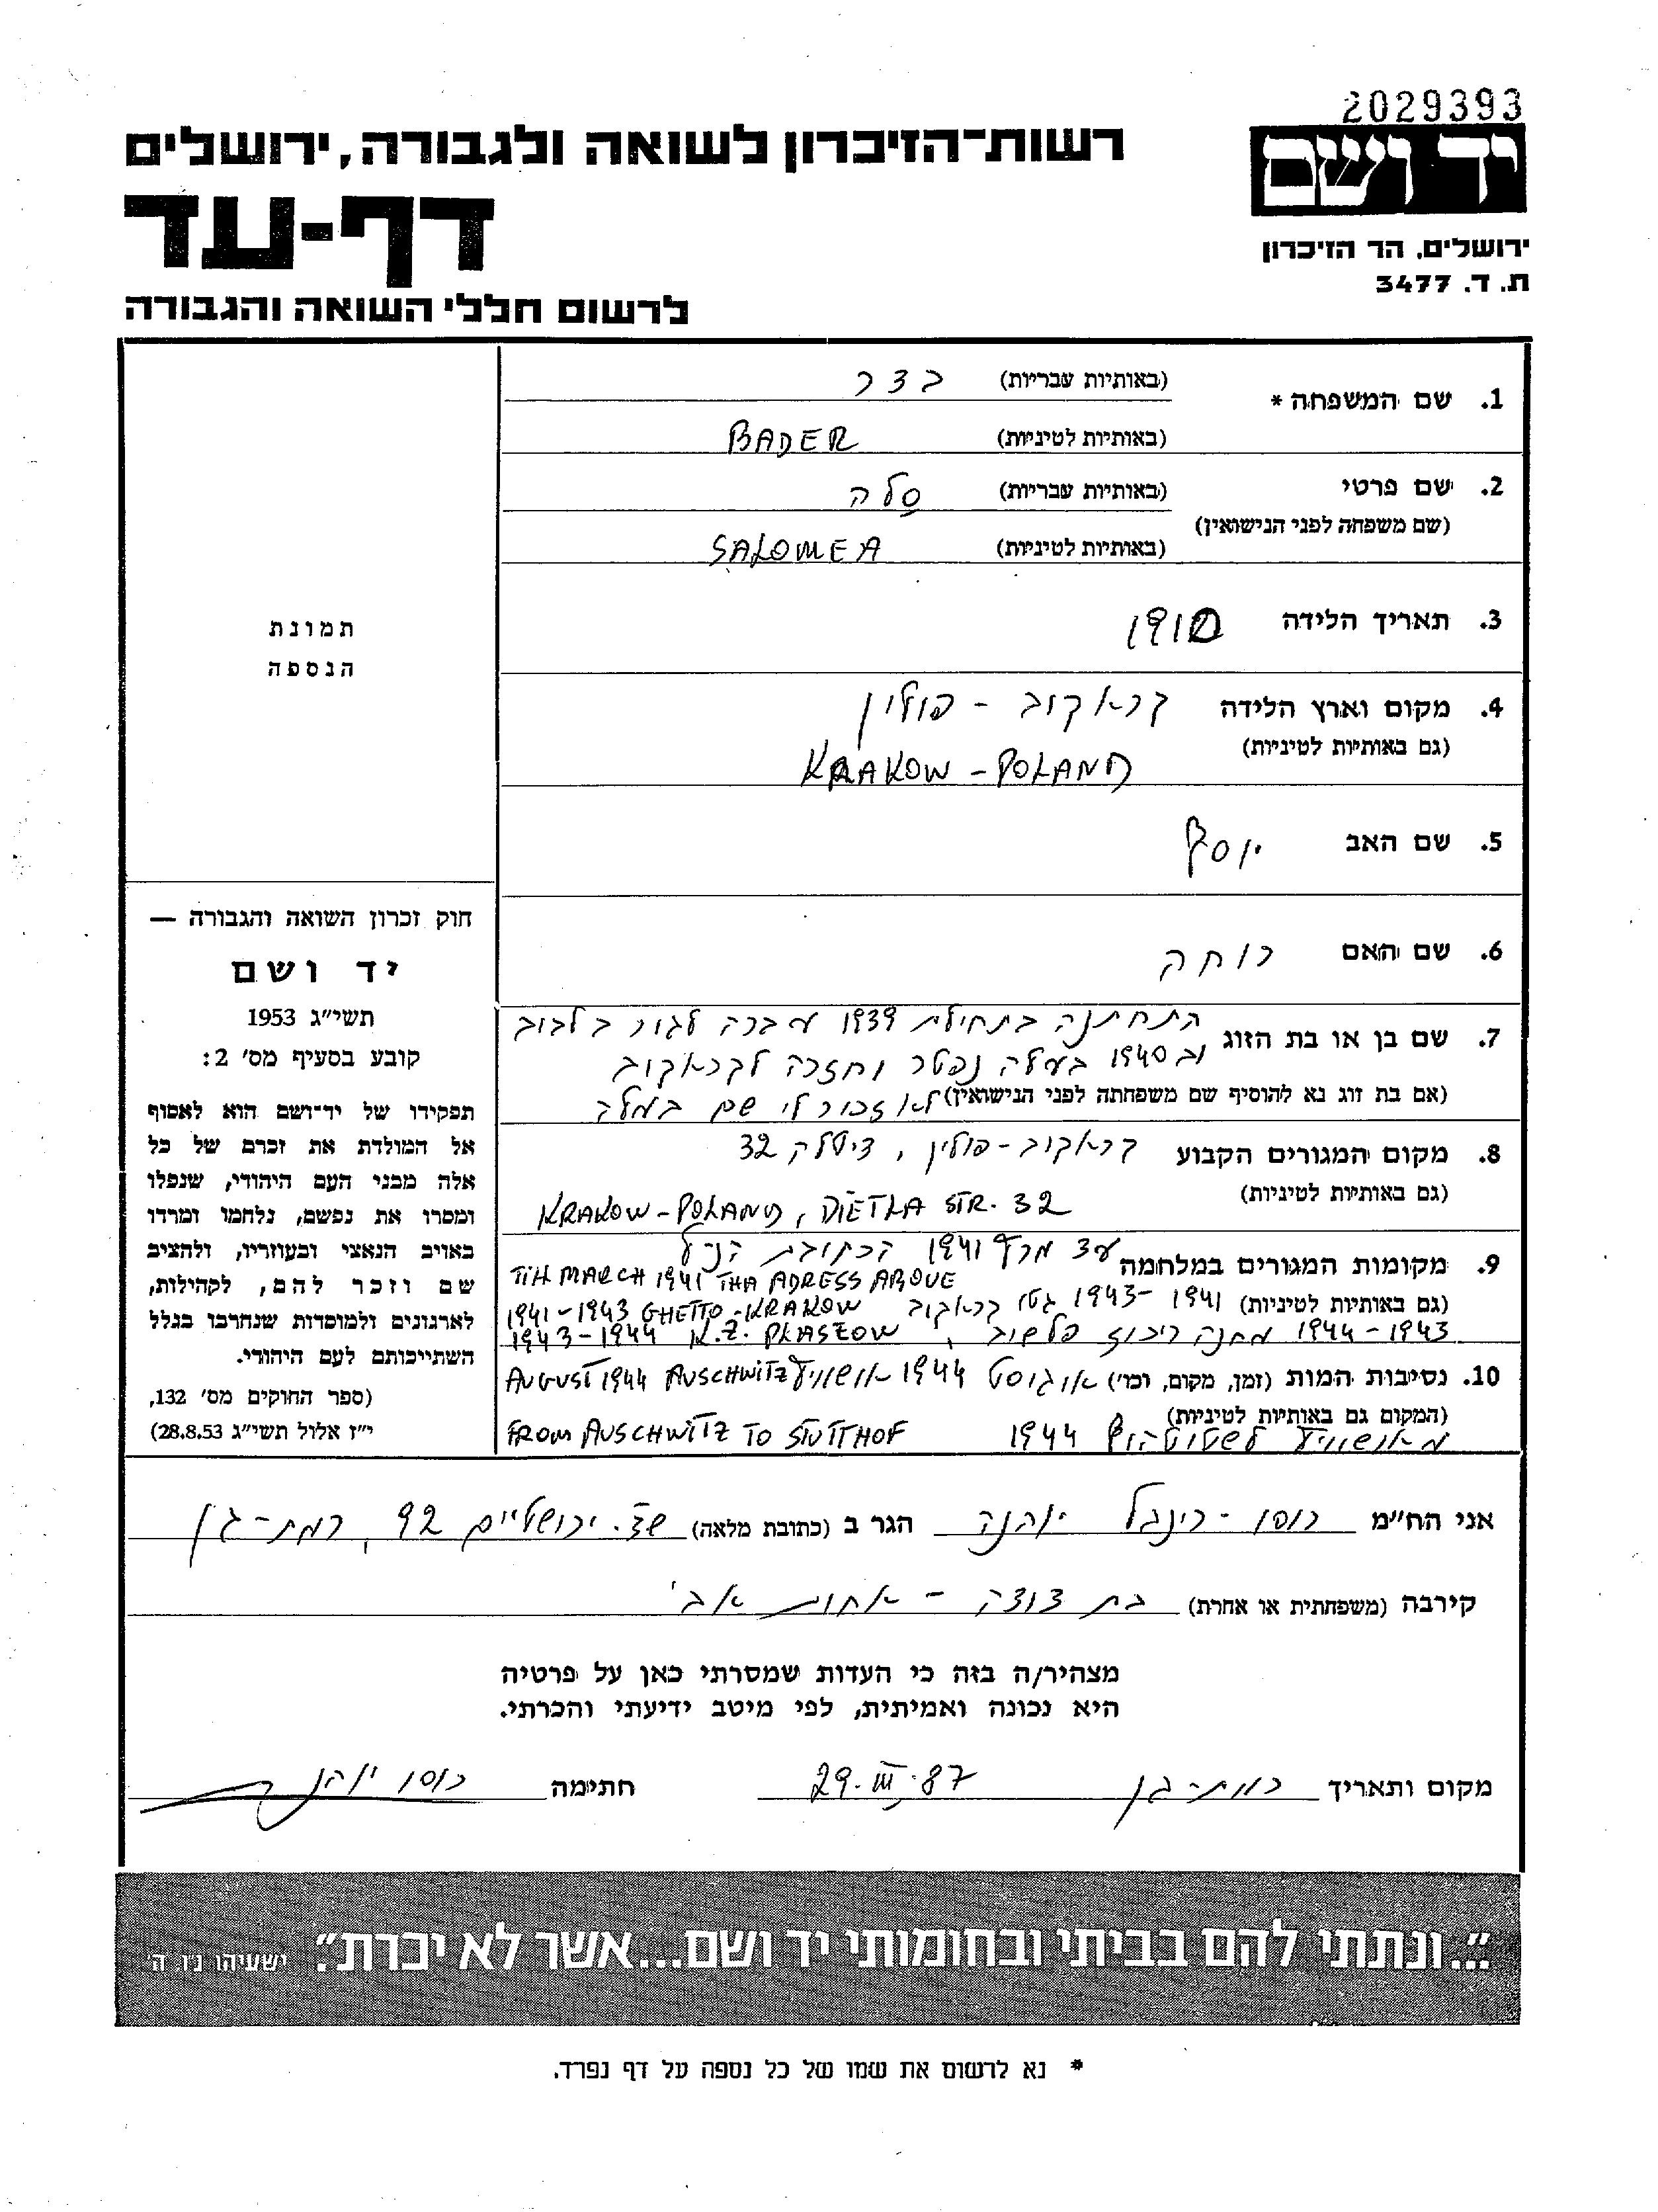 2029393
יד ושם
ירושלים, הר הזיכרון
ת. ד. 3477
רשות-הזיכרון לשואה ולגבורה, ירושלים
דף-עד
לרשום חללי השואה והגבורה
1. שם המשפחה * (באותיות עבריות) בדר
(באותיות לטיניות) BADER
2. שם פרטי (באותיות עבריות) סלה
(שם משפחה לפני הנישואין)
(באותיות לטיניות) SALOMEA
3. תאריך הלידה 1910
4. מקום וארץ הלידה קראקוב - פולין
(גם באותיות לטיניות) KRAKOW - POLAND
5. שם האב יוסף
6. שם האם רוחה
7. שם בן או בת הזוג התחתנה בתחילת 1939 עברה לגור בלבוב
וב 1940 בעלה נפטר וחזרה לקראקוב
(אם בת זוג נא להוסיף שם משפחתה לפני הנישואין) לא זכור לי שם בעלה
8. מקום המגורים הקבוע קראקוב - פולין, דיטלה 32
(גם באותיות לטיניות) KRAKOW - POLAND, DIETLA STR. 32
9. מקומות המגורים במלחמה עד מרץ 1941 הכתובת הנ"ל
TILL MARCH 1941 THA ADRESS ABOVE
(גם באותיות לטיניות) 1941 - 1943 גטו קראקוב 1941-1943 GHETTO-KRAKOW
1943-1944 מחנה ריכוז פלשוב, 1943-1944 K.Z. PLASZOW
10. נסיבות המות (זמן, מקום, וכו') אוגוסט 1944 אושוויץ AUGUST 1944 AUSCHWITZ
(המקום גם באותיות לטיניות)
מאושוויץ לשטוטהוף 1944 FROM AUSCHWITZ TO STUTTHOF
תמונת
הנספה
חוק זכרון השואה והגבורה —
יד ושם
תשי"ג 1953
קובע בסעיף מס' 2:
תפקידו של יד-ושם הוא לאסוף
אל המולדת את זכרם של כל
אלה מבני העם היהודי, שנפלו
ומסרו את נפשם, נלחמו ומרדו
באויב הנאצי ובעוזריו, ולהציב
שם וזכר להם, לקהילות,
לארגונים ולמוסדות שנחרבו בגלל
השתייכותם לעם היהודי.
(ספר החוקים מס' 132,
י"ז אלול תשי"ג 28.8.53)
אני הח"מ רוסו - רינגל יוהנה הגר ב (כתובת מלאה) שד. ירושלים 92, רמת-גן
קירבה (משפחתית או אחרת) בת דודה - אחות אבי
מצהיר/ה בזה כי העדות שמסרתי כאן על פרטיה
היא נכונה ואמיתית, לפי מיטב ידיעתי והכרתי.
מקום ותאריך רמת-גן 29.III.87 חתימה רוסו יוהנה
"...ונתתי להם בביתי ובחומותי יד ושם...אשר לא יכרת". ישעיהו נ"ו, ה'
* נא לרשום את שמו של כל נספה על דף נפרד.